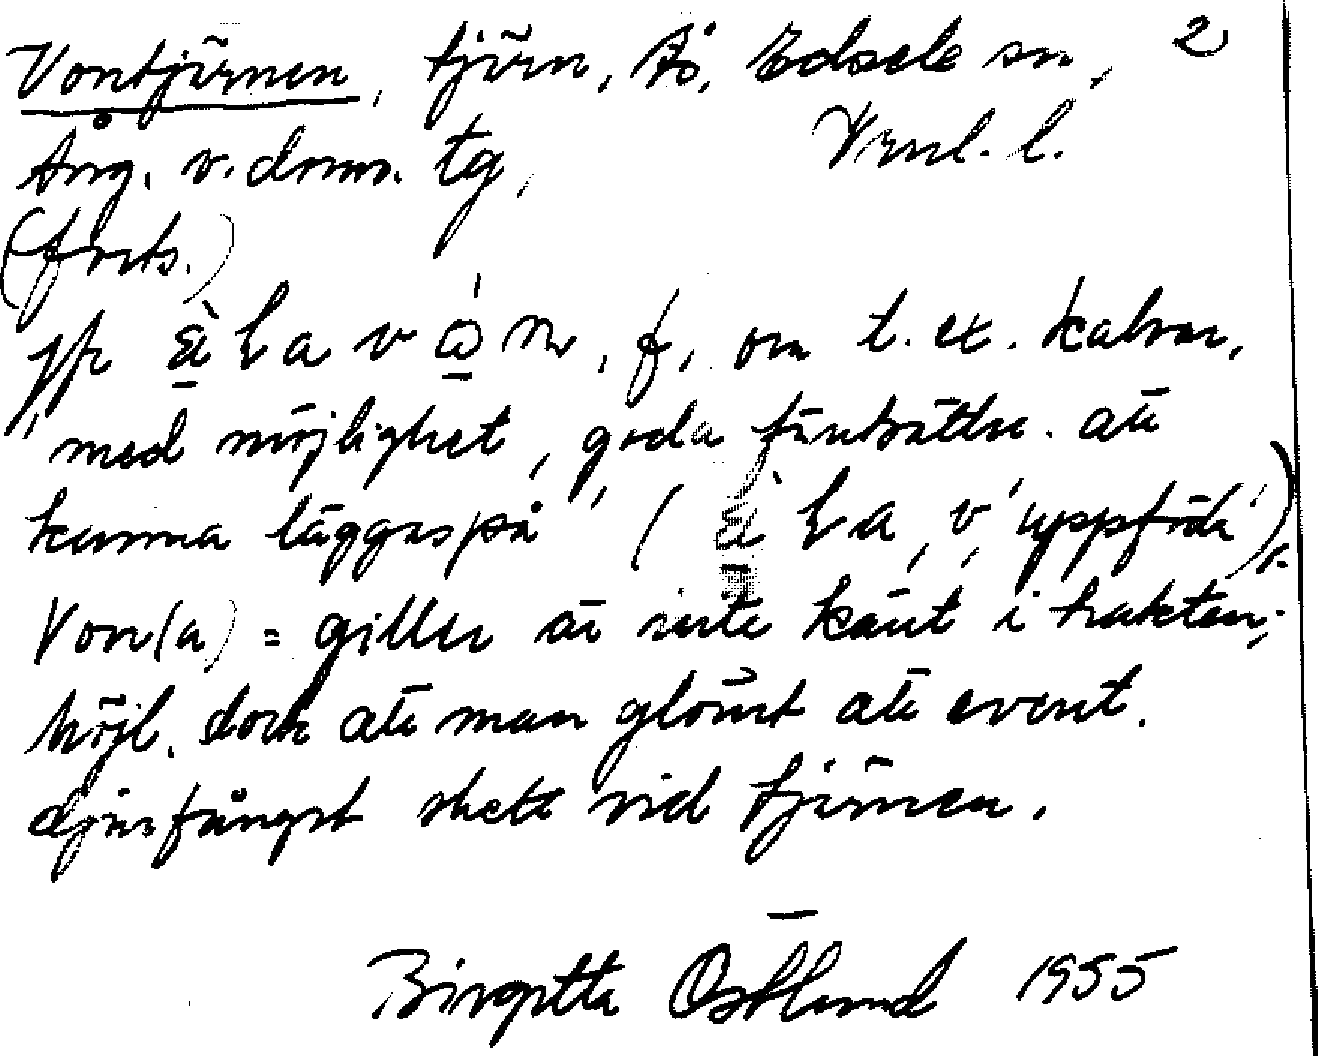 Vontjärnen, tjärn, Ås, Edsele sn, 2
Ång. v. doms. tg, Vrml. l.
(forts.)
jfr äLavo̲n, f, om t.ex. kalvar,
"med möjlighet, goda förutsättn. att
kunna läggas på" (äLa, v, 'uppföda').
Von(a) = giller är inte känt i trakten;
Möjl. dock att man glömt att event.
djurfångst skett vid tjärnen.
Birgitta Östlund 1955